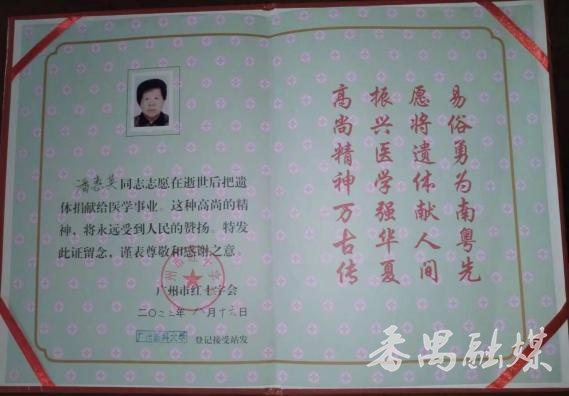 潘惠英同志志愿在逝世后把遗
体捐献给医学事业。这种高尚的精
神，将永远受到人民的赞扬。特发
此证留念，谨表尊敬和感谢之意。
广州市红十字会
登记接受站发
易俗勇为南粤先
愿将遗体献人间
振兴医学强华夏
高尚精神万古传
番禺融媒